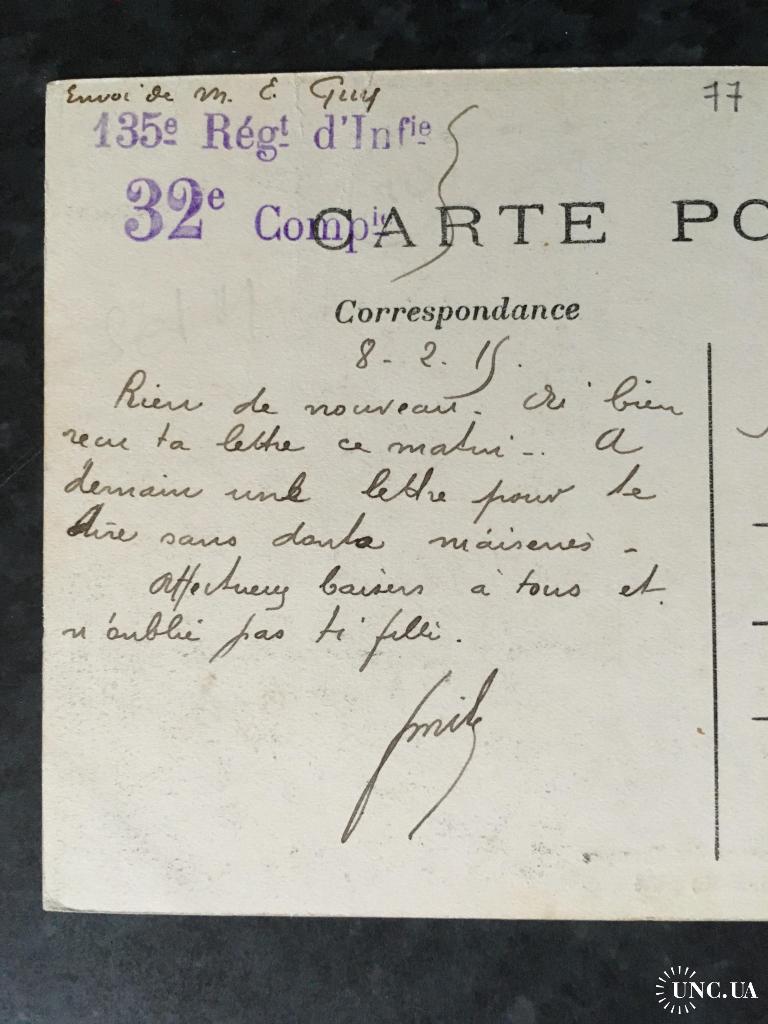 Envoi de M. E. Guy
77
135e Régt d'Infie
32e Compie
CARTE PO
Correspondance
8 - 2. 15.
Rien de nouveau. Ai bien
recu ta lettre ce matin -. A
demain une lettre pour te
dire sans doute
Affectueux baisers à tous et
n'oublie pas
Emile
UNC.UA